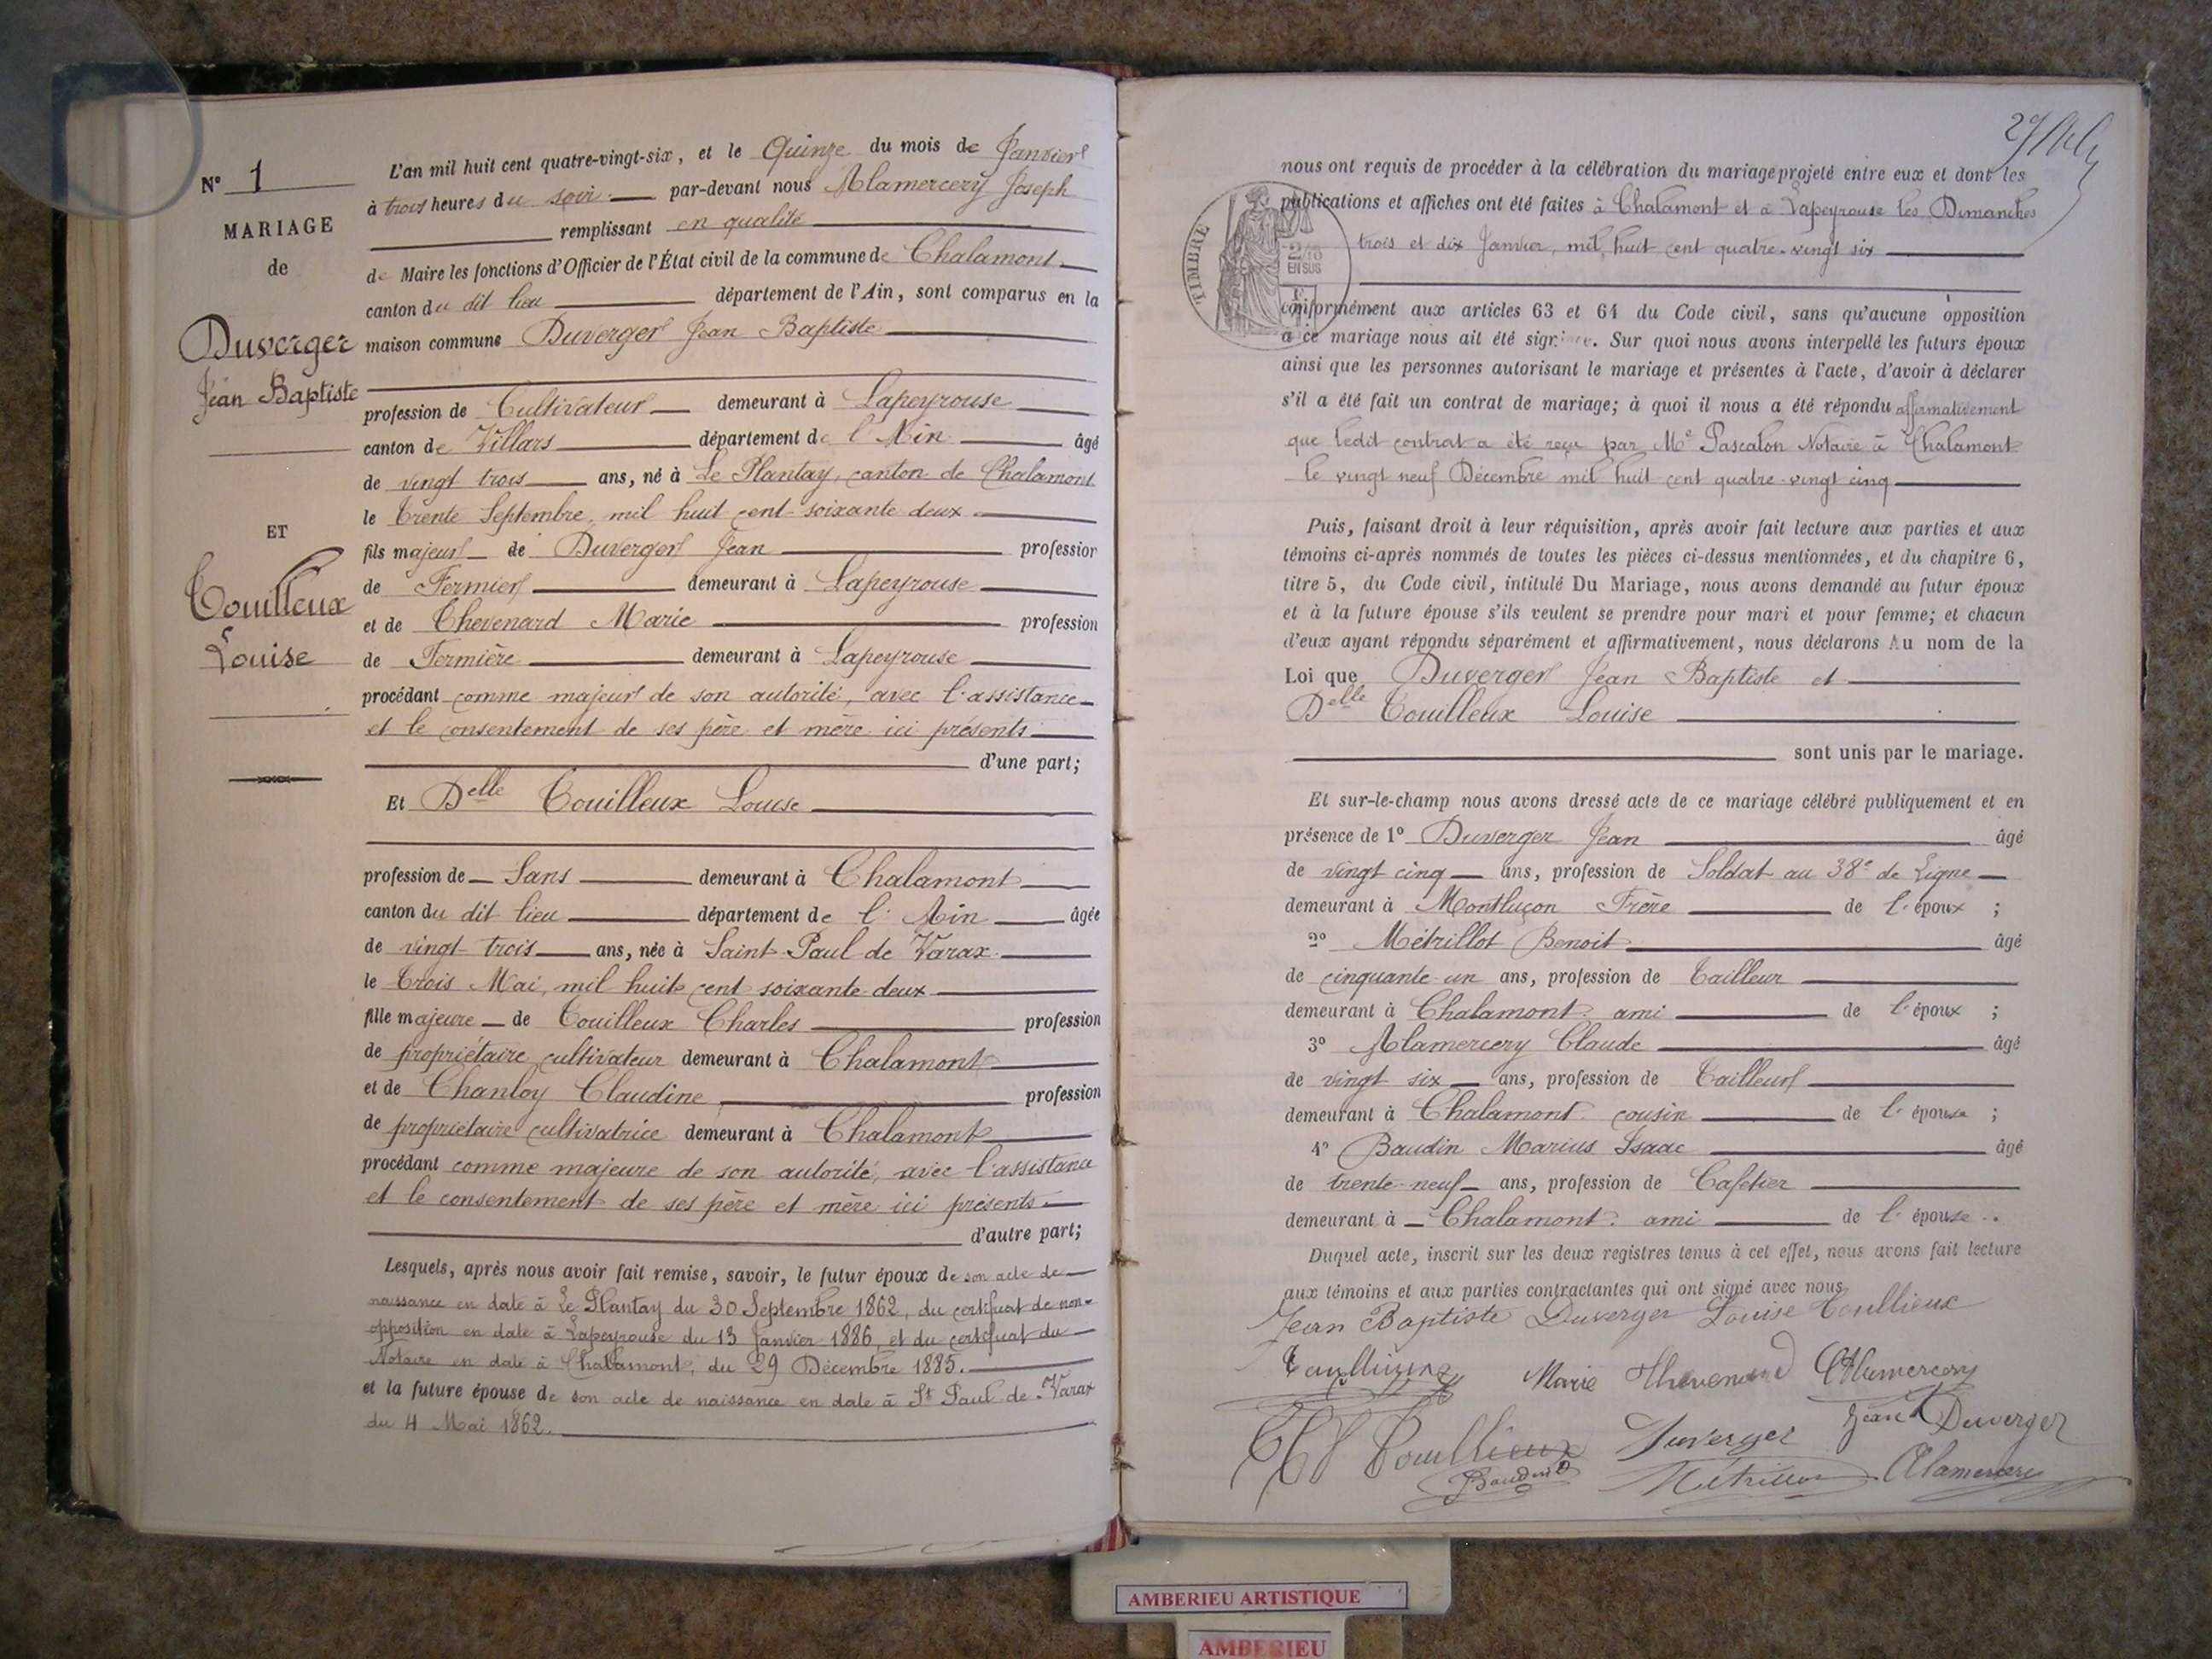 N° 1
MARIAGE
de
Duverger
Jean Baptiste
ET
Touilleux
Louise
L'an mil huit cent quatre-vingt-six, et le Quinze du mois de Janvier
à trois heures du soir par-devant nous Alamercery Joseph
remplissant en qualité
de Maire les fonctions d'Officier de l'État civil de la commune de Chalamont
canton du dit lieu département de l'Ain, sont comparus en la
maison commune Duverger Jean Baptiste
profession de Cultivateur demeurant à Lapeyrouse
canton de Villars département de l'Ain âgé
de vingt trois ans, né à Le Plantay, canton de Chalamont
le trente Septembre, mil huit cent soixante deux
fils majeur de Duverger Jean profession
de Fermier demeurant à Lapeyrouse
et de Thevenard Marie profession
de Fermière demeurant à Lapeyrouse
procédant comme majeur de son autorité, avec l'assistance
et le consentement de ses père et mère ici présents
d'une part;
Et Delle Touilleux Louise
profession de Sans demeurant à Chalamont
canton du dit lieu département de l'Ain âgée
de vingt trois ans, née à Saint Paul de Varax
le trois Mai, mil huit cent soixante deux
fille majeure de Touilleux Charles profession
de propriétaire cultivateur demeurant à Chalamont
et de Chanloy Claudine profession
de propriétaire cultivatrice demeurant à Chalamont
procédant comme majeure de son autorité, avec l'assistance
et le consentement de ses père et mère ici présents
d'autre part;
Lesquels, après nous avoir fait remise, savoir, le futur époux de son acte de
naissance en date à Le Plantay du 30 Septembre 1862, du certificat de non-
opposition en date à Lapeyrouse du 13 Janvier 1886, et du certificat du
Notaire en date à Chalamont, du 29 Décembre 1885.
et la future épouse de son acte de naissance en date à St Paul de Varax
du 4 Mai 1862.
nous ont requis de procéder à la célébration du mariage projeté entre eux et dont les
publications et affiches ont été faites à Chalamont et à Lapeyrouse les Dimanches
trois et dix Janvier, mil huit cent quatre-vingt six
TIMBRE
2/10
EN SUS
conformément aux articles 63 et 64 du Code civil, sans qu'aucune opposition
à ce mariage nous ait été signifiée. Sur quoi nous avons interpellé les futurs époux
ainsi que les personnes autorisant le mariage et présentes à l'acte, d'avoir à déclarer
s'il a été fait un contrat de mariage; à quoi il nous a été répondu affirmativement
que ledit contrat a été reçu par Me Pascalon Notaire à Chalamont
le vingt neuf Décembre mil huit cent quatre-vingt cinq
Puis, faisant droit à leur réquisition, après avoir fait lecture aux parties et aux
témoins ci-après nommés de toutes les pièces ci-dessus mentionnées, et du chapitre 6,
titre 5, du Code civil, intitulé Du Mariage, nous avons demandé au futur époux
et à la future épouse s'ils veulent se prendre pour mari et pour femme; et chacun
d'eux ayant répondu séparément et affirmativement, nous déclarons Au nom de la
Loi que Duverger Jean Baptiste et
Delle Touilleux Louise
sont unis par le mariage.
Et sur-le-champ nous avons dressé acte de ce mariage célébré publiquement et en
présence de 1° Duverger Jean âgé
de vingt cinq ans, profession de Soldat au 38e de Ligne
demeurant à Montluçon Frère de l'époux ;
2° Métrillot Benoit âgé
de cinquante un ans, profession de Tailleur
demeurant à Chalamont ami de l'époux ;
3° Alamercery Claude âgé
de vingt six ans, profession de Tailleur
demeurant à Chalamont cousin de l'épouse ;
4° Baudin Marius Isaac âgé
de trente-neuf ans, profession de Cafetier
demeurant à Chalamont ami de l'épouse
Duquel acte, inscrit sur les deux registres tenus à cet effet, nous avons fait lecture
aux témoins et aux parties contractantes qui ont signé avec nous
Jean Baptiste Duverger Louise Touillieux
Marie Thevenard Alamercery
Touillieux Duverger Jean Duverger
Baudin Métrillot Alamercery
AMBERIEU ARTISTIQUE
AMBERIEU